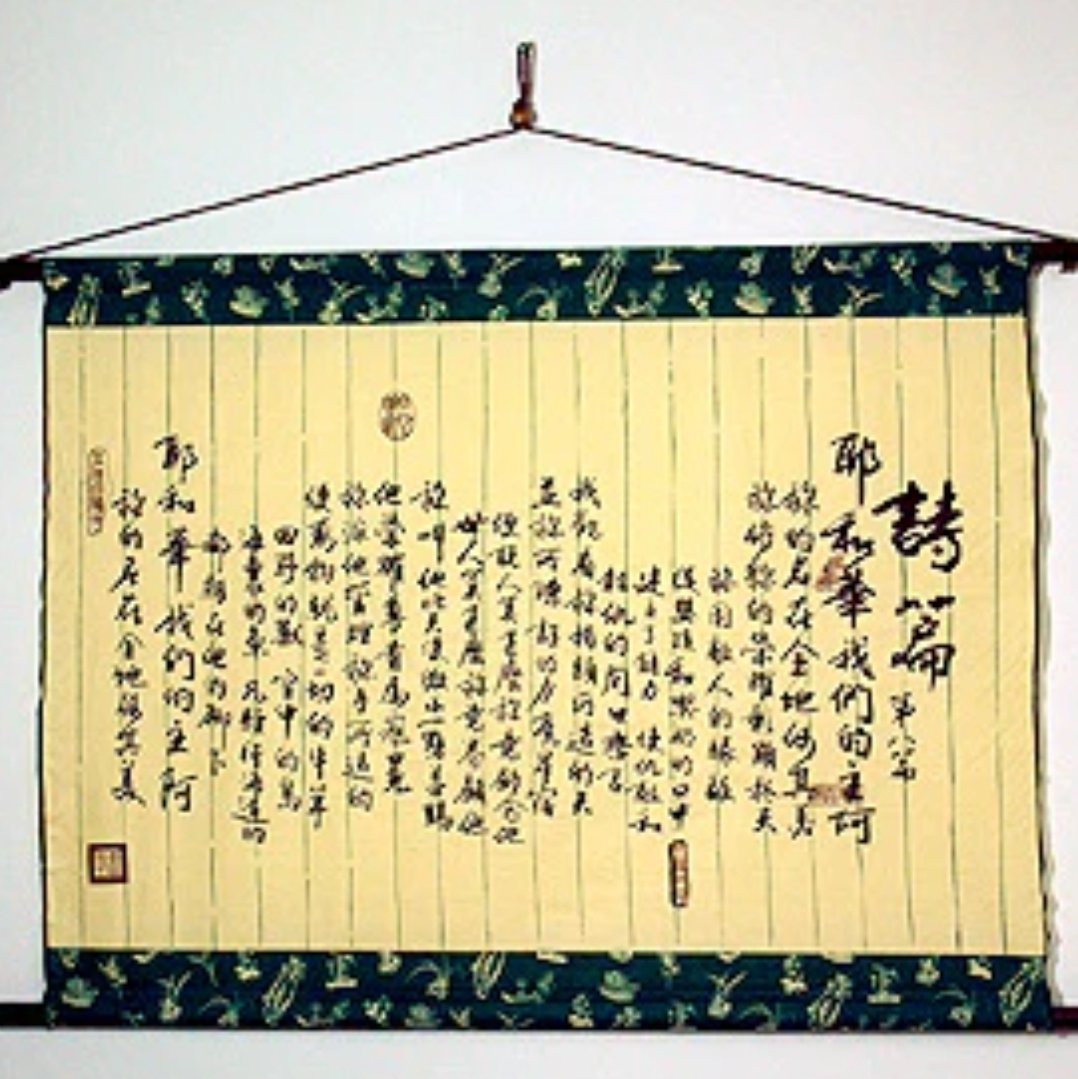 詩篇 第八篇
耶和華我們的主阿
祢的名在全地何其美
祢將祢的榮耀彰顯於天
祢因敵人的緣故
從嬰孩和吃奶的口中
建立了能力 使仇敵和
報仇的閉口無言
我觀看祢指頭所造的天
並祢所陳設的月亮星宿
便說人算甚麼祢竟顧念他
世人算甚麼祢竟眷顧他
祢叫他比天使微小一點並賜
他榮耀尊貴為冠冕
祢派他管理祢手所造的
使萬物就是一切的牛羊
田野的獸 空中的鳥
海裏的魚 凡經行海道的
都服在他的腳下
耶和華我們的主阿
祢的名在全地何其美